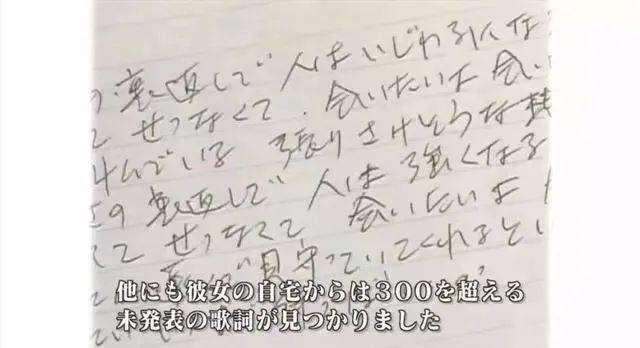 裏返しで 人はいじわるにな
せつなくて 会いたいよ 会い
んでいる 張りさけそうな
の裏返しで 人は強くなる
て せつなくて 会いたいよ
見守っていてくれると
他にも彼女の自宅からは300を超える
未発表の歌詞が見つかりました